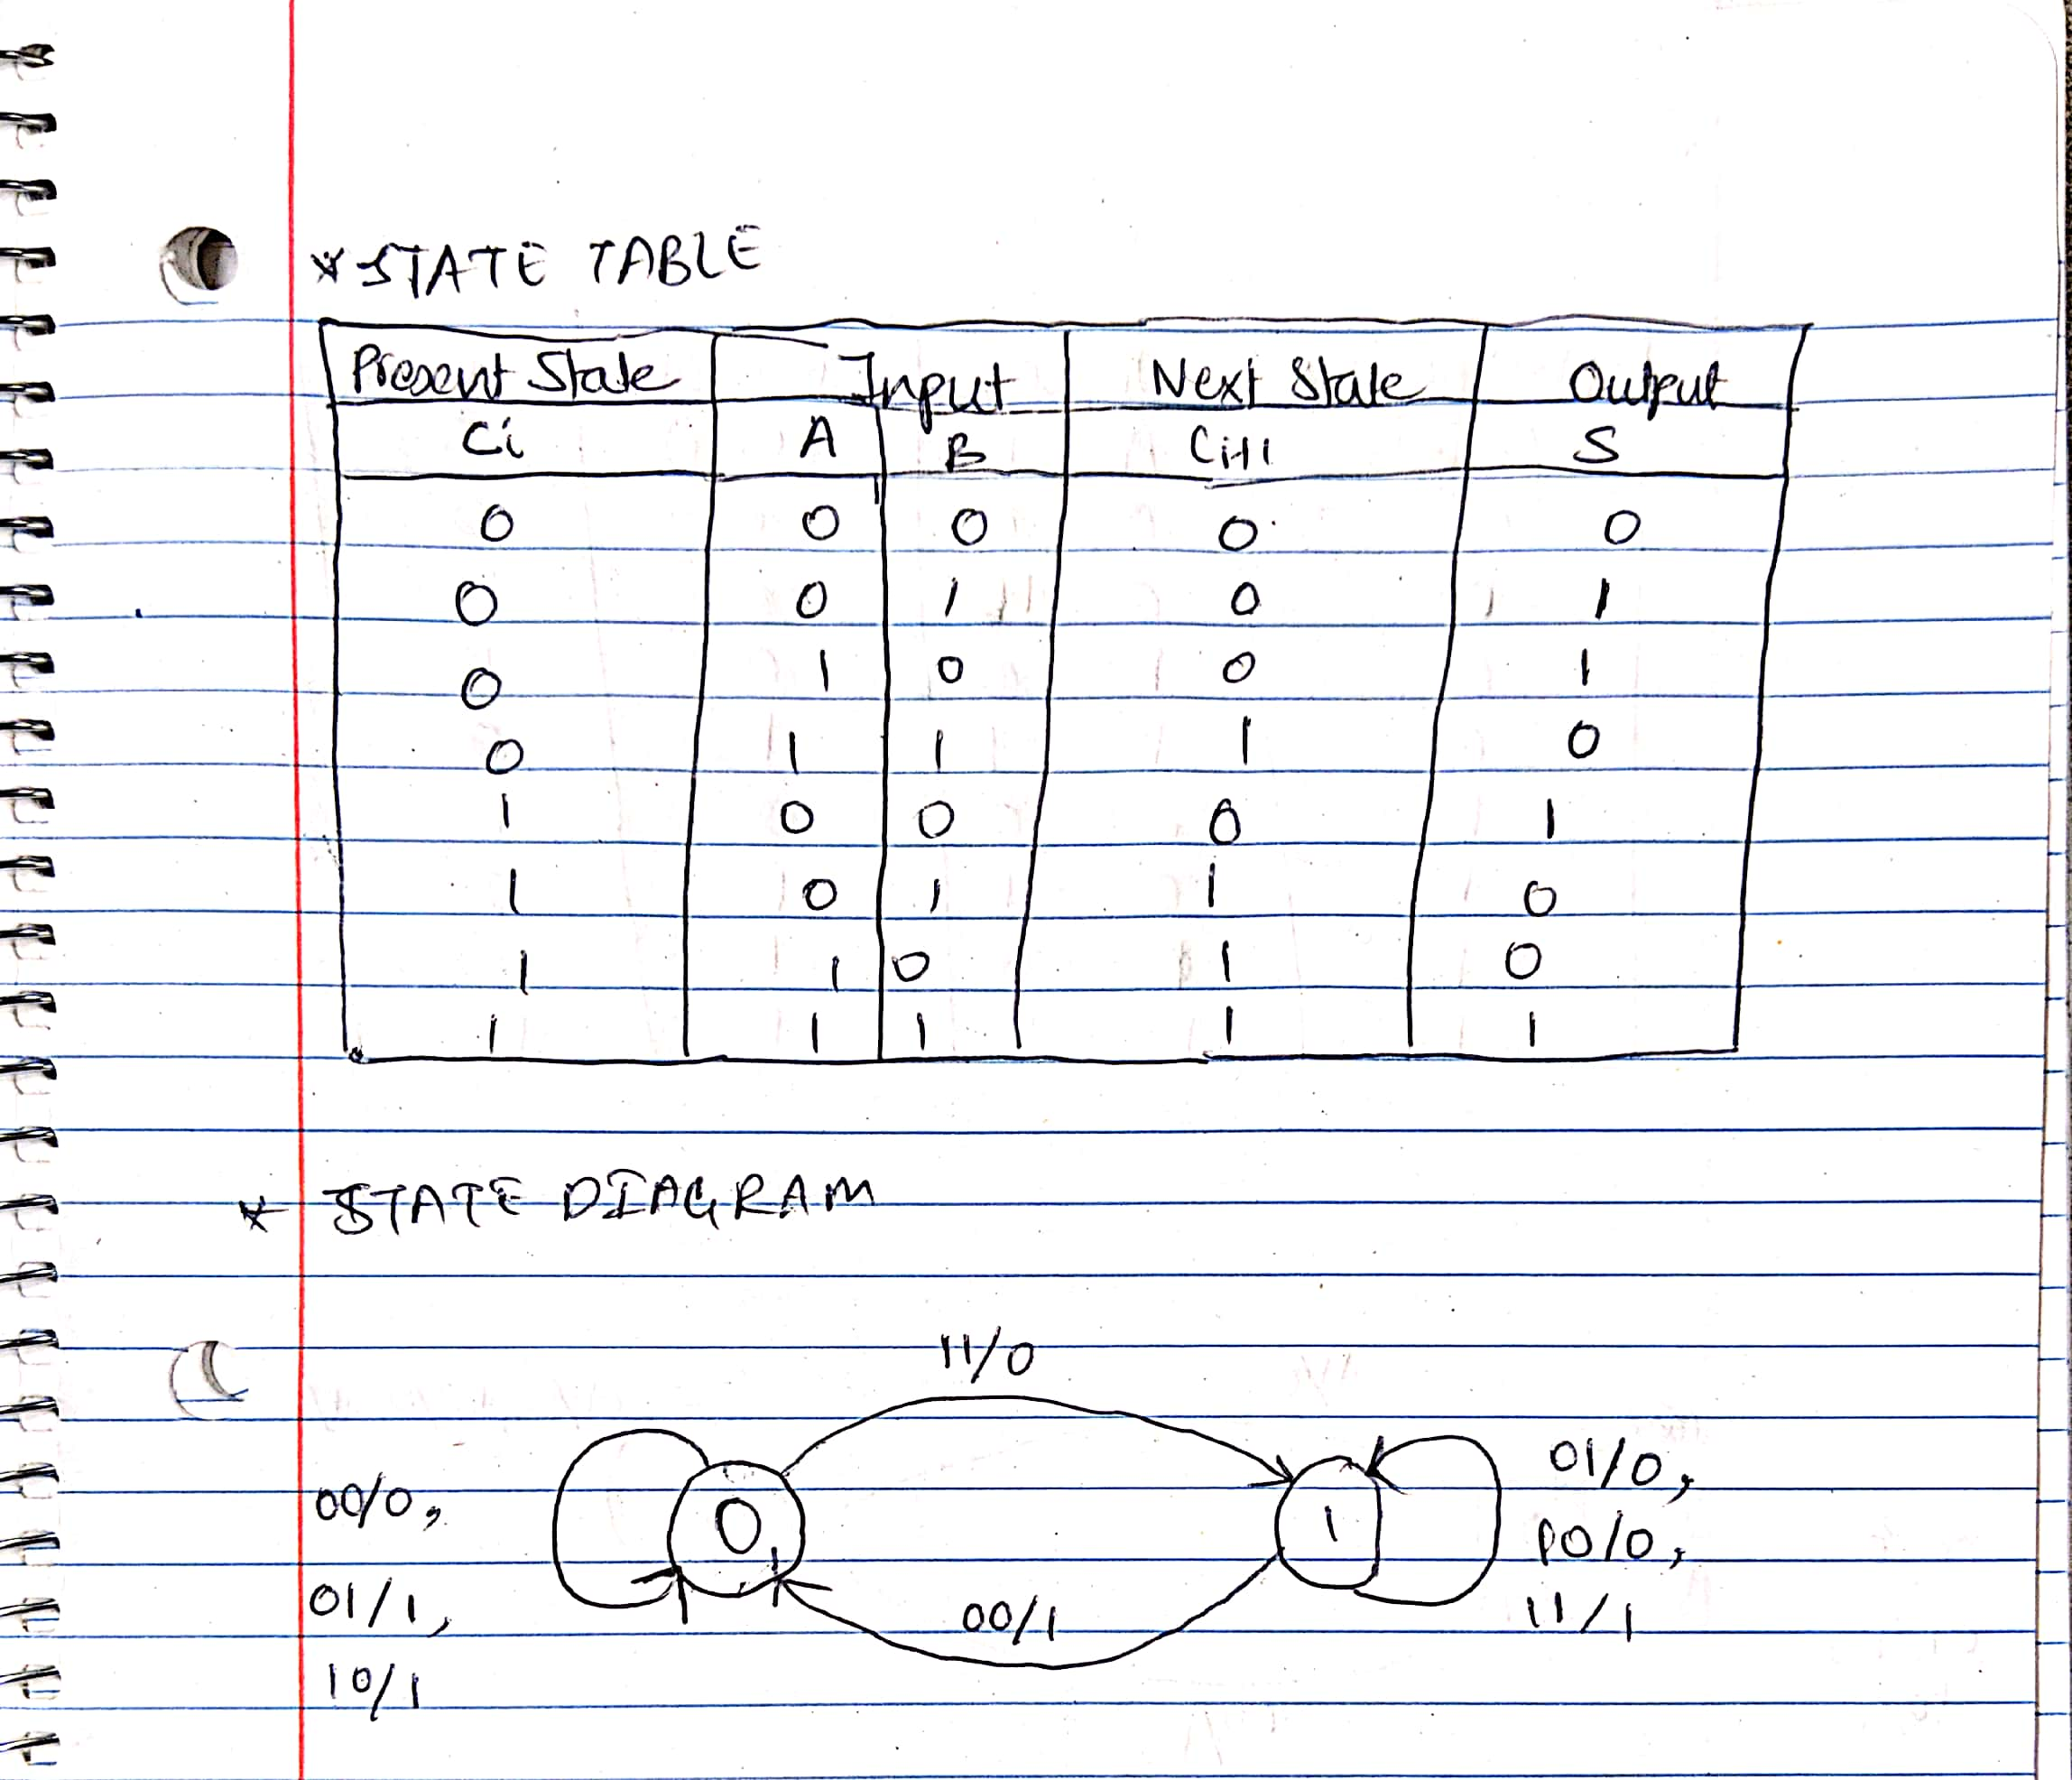 * STATE TABLE
Present State Input Next State Output
Ci A B Ci+1 S
0 0 0 0 0
0 0 1 0 1
0 1 0 0 1
0 1 1 1 0
1 0 0 0 1
1 0 1 1 0
1 1 0 1 0
1 1 1 1 1
* STATE DIAGRAM
11/0
00/0,
01/1,
10/1
0
1
00/1
01/0,
10/0,
11/1